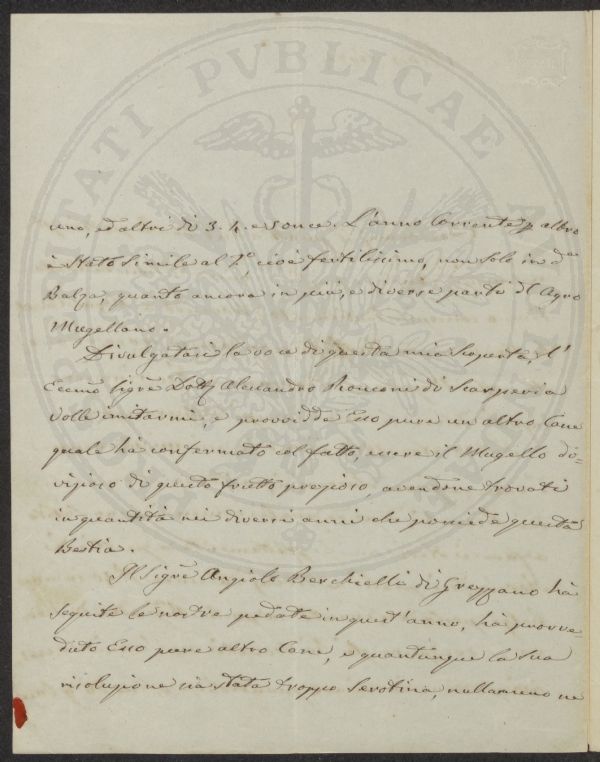 uno, ed altri di 3. 4. e 5 once. L'anno Corrente p altro
è Stato Simile al 2.º cioè fertilissimo, non Solo in da
Balza, quanto ancora in più, e diverse parti dl Agro
Mugellano.
Divulgatasi la voce di questa mia Scoperta, l'
Eccmo Sigre Dottr Alessandro Ronconi di Scarperia
Volle imitarmi, e provvidde Esso pure un'altro Cane
quale hà confermato col fatto, essere il Mugello do=
vizioso di questo frutto prezioso, avendone trovati
in quantità nei diversi anni che possiede questa
Bestia.
Il Sigre Angiolo Berchielli di Grezzano hà
Seguite le nostre pedate in quest'anno, hà provve
duto Esso pure altro Cane, e quantunque la Sua
risoluzione sia Stata troppo Serotina, nullameno ne
PVBLICAE